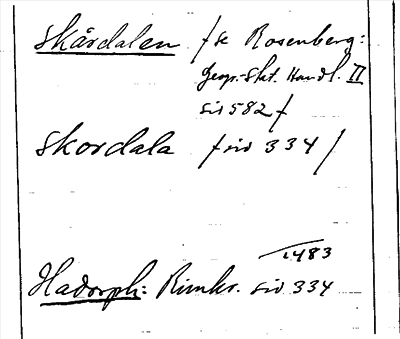 Skårdalen /se Rosenberg:
Geogr.-Stat. Handl. II
sid 582/
Skordala /sid 334/
1483
Hadorph: Rimkr. sid 334